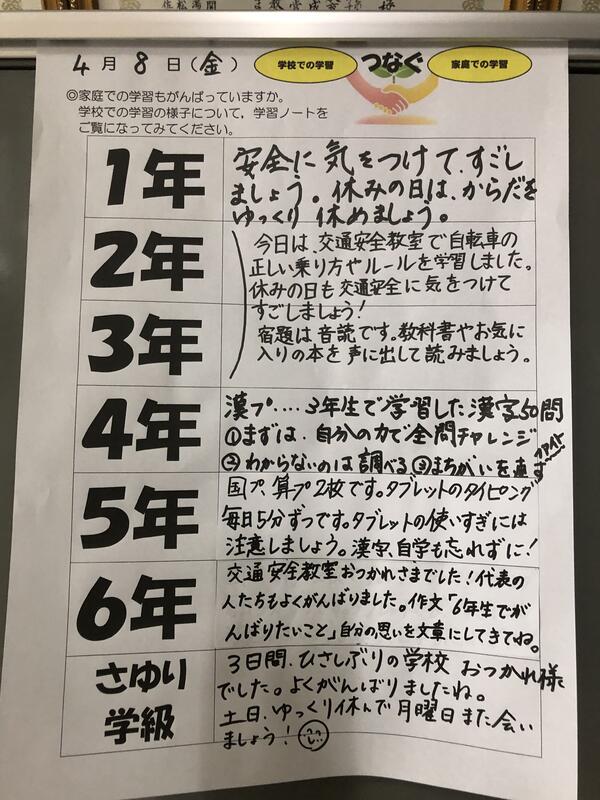 4月8日(金)
学校での学習
つなぐ
家庭での学習
◎家庭での学習もがんばっていますか。
学校での学習の様子について,学習ノートを
ご覧になってみてください。
1年
安全に気をつけて、すごし
ましょう。休みの日は、からだを
ゆっくり休めましょう。
2年
3年
今日は、交通安全教室で自転車の
正しい乗り方やルールを学習しました。
休みの日も交通安全に気をつけて
すごしましょう!
宿題は音読です。教科書やお気に
入りの本を声に出して読みましょう。
4年
漢プ‥‥3年生で学習した漢字50問
①まずは、自分の力で全問チャレンジ
②わからないのは調べる③まちがいを直す
ファイト
5年
国プ、算プ2枚です。タブレットのタイピング
毎日5分ずつです。タブレットの使いすぎには
注意しましょう。漢字、自学も忘れずに!
6年
交通安全教室おつかれさまでした!代表の
人たちもよくがんばりました。作文「6年生でが
んばりたいこと」自分の思いを文章にしてきてね。
さゆり
学級
3日間、ひさしぶりの学校おつかれ様
でした。よくがんばりましたね。
土日、ゆっくり休んで月曜日また会い
ましょう!